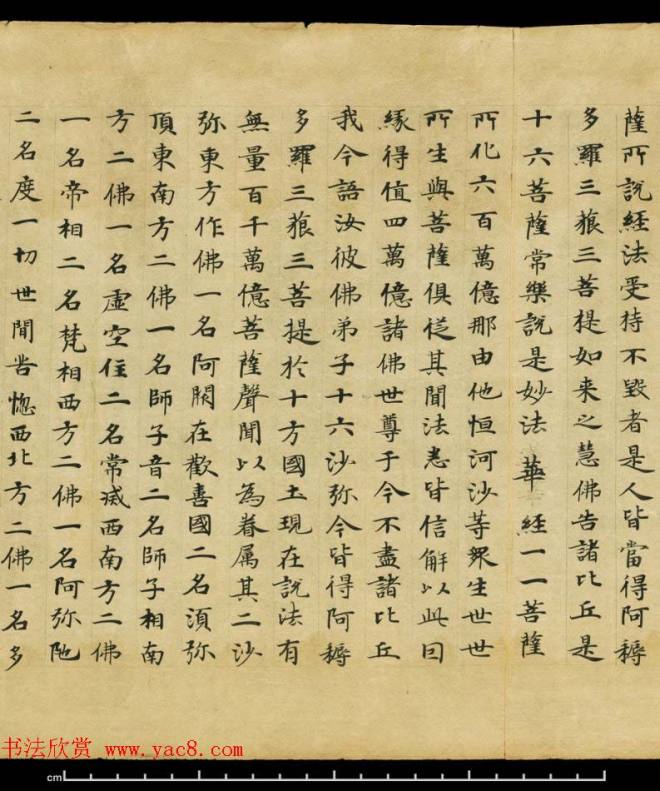 薩所說經法受持不毀者是人皆當得阿耨
多羅三藐三菩提如来之慧佛告諸比丘是
十六菩薩常樂說是妙法華經一一菩薩
所化六百萬億那由他恒河沙等衆生世世
所生與菩薩俱從其聞法悉皆信解以此因
緣得值四萬億諸佛世尊于今不盡諸比丘
我今語汝彼佛弟子十六沙弥今皆得阿耨
多羅三藐三菩提於十方國土現在說法有
無量百千萬億菩薩聲聞以為眷属其二沙
弥東方作佛一名阿閦在歡喜國二名湏弥
頂東南方二佛一名師子音二名師子相南
方二佛一名虛空住二名常滅西南方二佛
一名帝相二名梵相西方二佛一名阿弥陁
二名度一切世間苦惱西北方二佛一名多
书法欣赏 www.yac8.com
cm